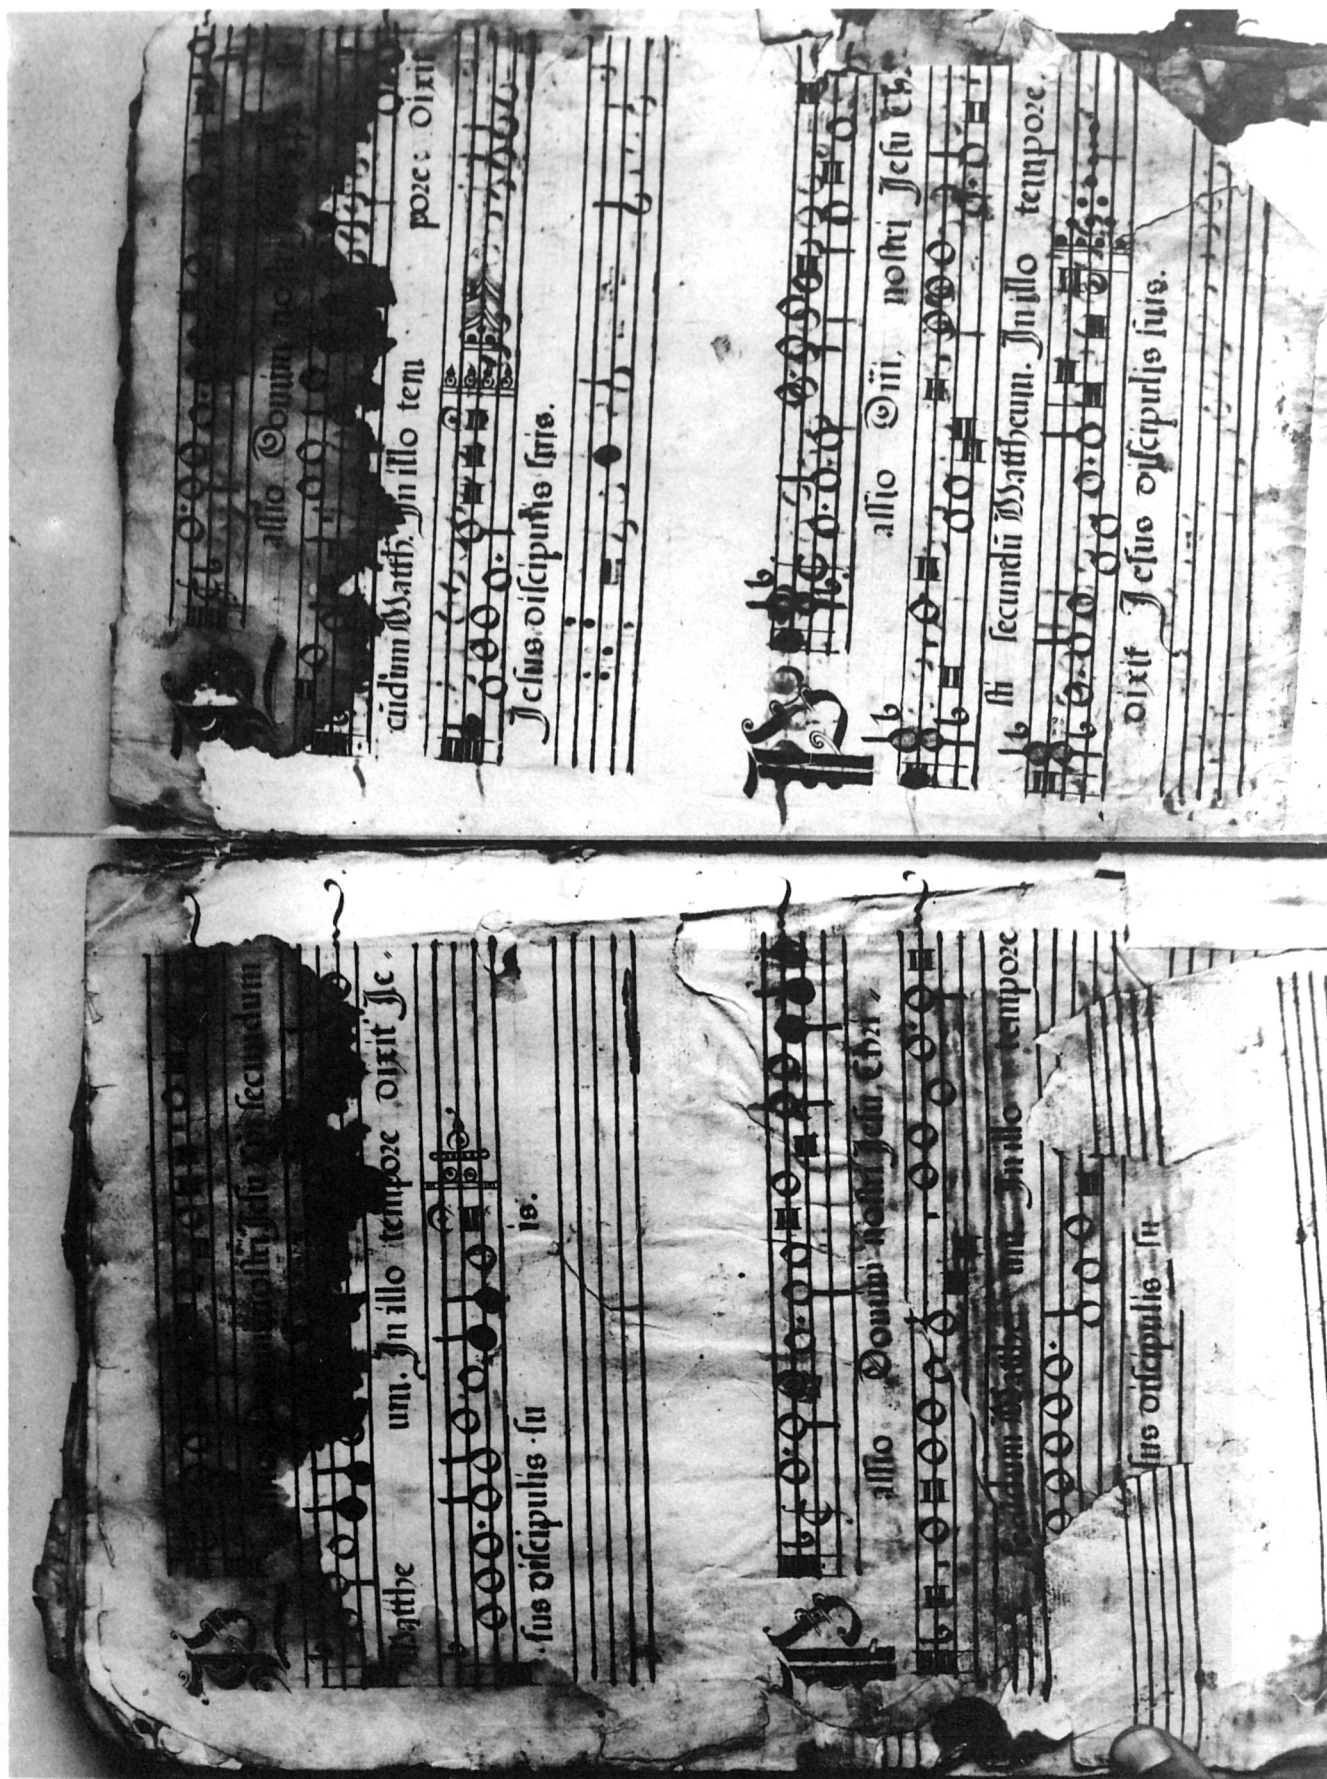 nostri Jesu Xpi secundum
Matthe um. In illo tempore dixit Je-
sus discipulis su is.
Passio Domini nostri Jesu Chri-
cundum Matthe um. In illo tempore
sus discipulis su
Passio Domini nostri
cūdum Matth. In illo tem pore: dixit
Jesus discipulis suis.
Passio Dñi, nostri Jesu Ch
sti secundū Mattheum. In illo tempore.
dixit Jesus discipulis suis.